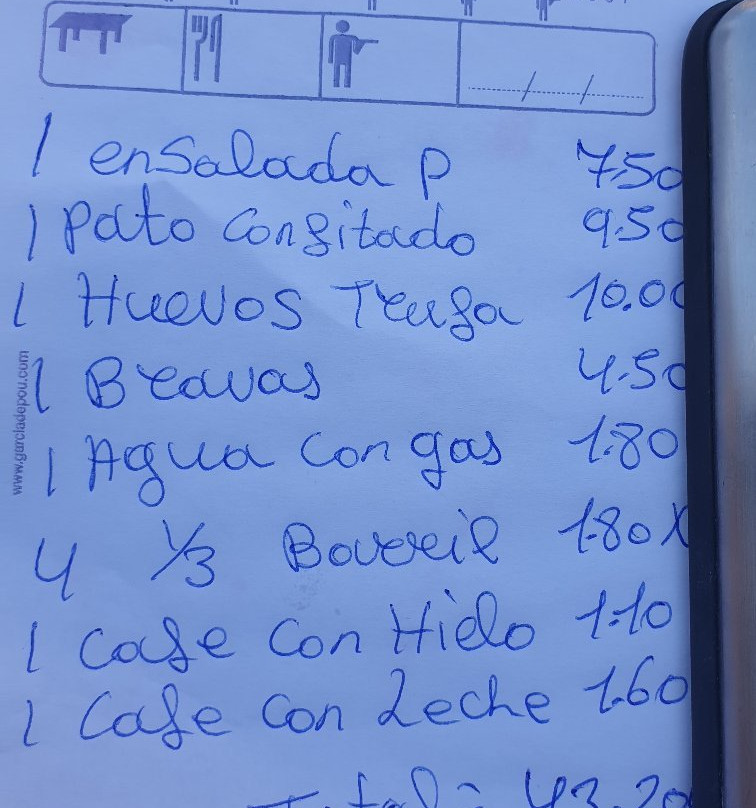 1 ensalada P 7.50
1 Pato Confitado 9.50
1 Huevos Trufa 10.00
1 Bravas 4.50
www.garciadepou.com
1 Agua con gas 1.80
4 1/3 1.80 X
1 Cafe con Hielo 1.10
1 Cafe con Leche 1.60
Total = 43.20